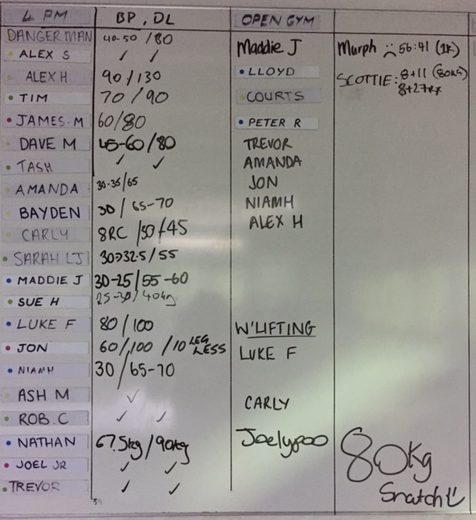 4 PM BP, DL OPEN GYM
DANGERMAN 40-50/80 Maddie J Murph :( 56:41 (1K)
ALEX S ✓ ✓
ALEX H 90/130 LLOYD SCOTTIE: 8+11 (80KG)
TIM 70/90 COURTS 8+27rx
JAMES.M 60/80 PETER R
DAVE M 45-60/80 TREVOR
TASH ✓ ✓ AMANDA
AMANDA 30-35/65 JON
BAYDEN 30/65-70 NIAMH
CARLY 8RC /30/45 ALEX H
SARAH LJ 30>32.5/55
MADDIE J 30-25/55-60
SUE H 25-30/40kg
LUKE F 80/100 W'LIFTING
JON 60/100/10 LEG LESS LUKE F
NIAMH 30/65-70
ASH M ✓ CARLY
ROB.C ✓ ✓
NATHAN 67.5kg/90kg Joelypoo 80kg
JOEL JR ✓ ✓ Snatch
TREVOR ✓ ✓